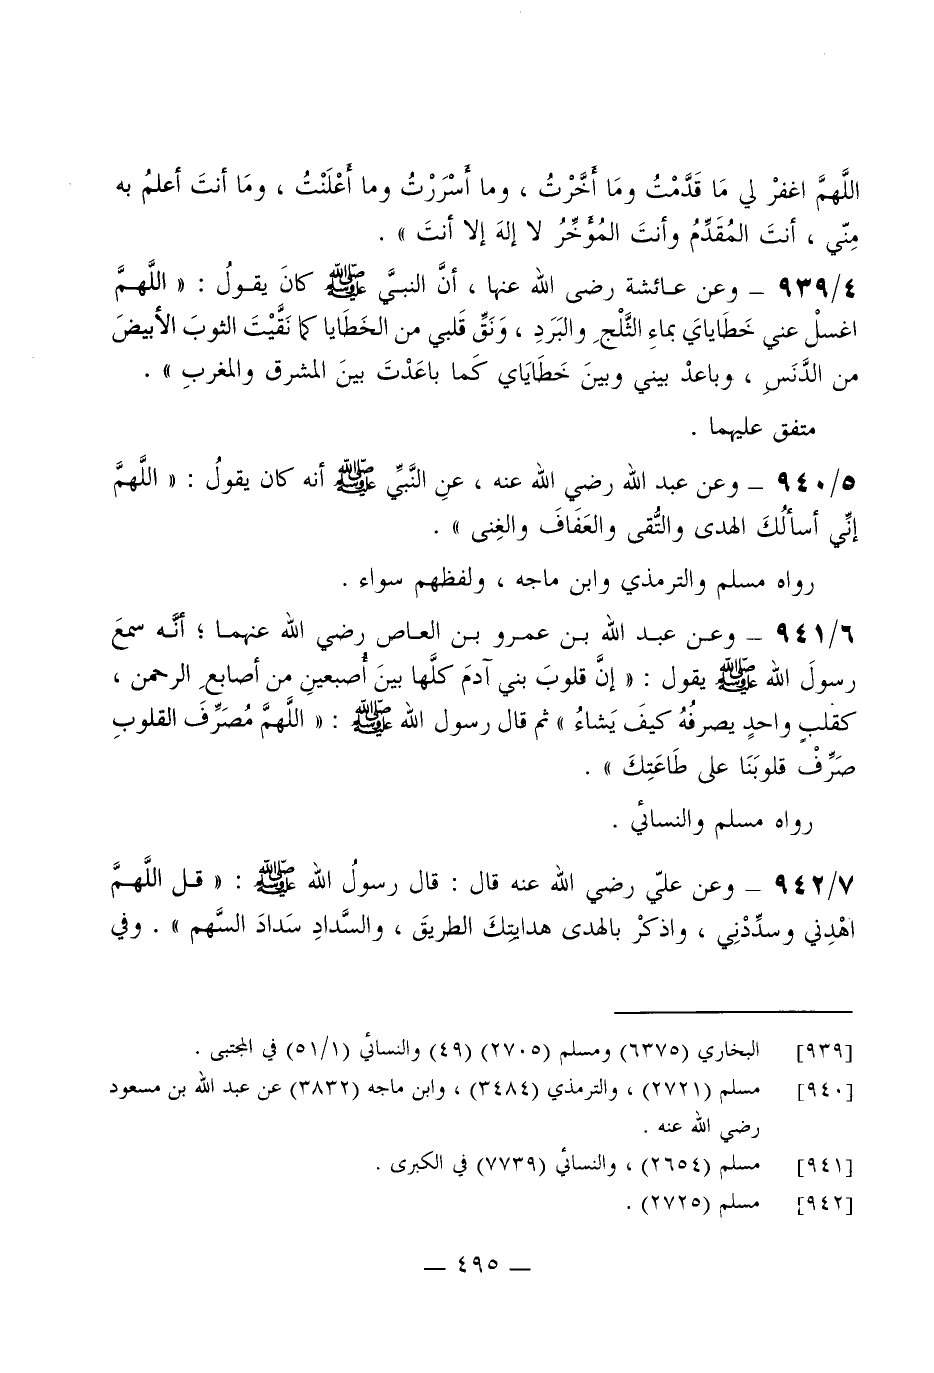 اللَّهمَّ اغفرْ لي مَا قَدَّمْتُ ومَا أَخَّرْتُ ، وما أَسْرَرْتُ وما أَعْلَنْتُ ، ومَا أنتَ أعلمُ به
مِنِّي ، أنتَ المُقَدِّمُ وأنتَ المُؤَخِّرُ لا إلهَ إلا أنتَ » .
٩٣٩/٤ ـ وعن عائشة رضى الله عنها ، أنَّ النبيَّ ﷺ كانَ يقولُ : « اللَّهمَّ
اغسلْ عني خَطَايايَ بماءِ الثَّلْجِ والبَرَدِ ، وَنَقِّ قَلبي من الخطَايا كما نَقَّيْتَ الثوبَ الأبيضَ
من الدَّنَسِ ، وباعدْ بيني وبينَ خَطَايَاي كَما باعَدْتَ بينَ المشرق والمغربِ » .
متفق عليهما .
٩٤٠/٥ ـ وعن عبد الله رضي الله عنه ، عنِ النَّبيِّ ﷺ أنه كان يقولُ : « اللَّهمَّ
إنِّي أسألُكَ الهدى والتُّقى والعَفَافَ والغِنى » .
رواه مسلم والترمذي وابن ماجه ، ولفظهم سواء .
٩٤١/٦ ـ وعن عبد الله بن عمرو بن العاص رضي الله عنهما ؛ أنَّه سمعَ
رسولَ الله ﷺ يقول : « إنَّ قلوبَ بني آدمَ كلَّها بينَ أُصبعين من أصابعِ الرحمن ،
كقلبٍ واحدٍ يصرفُهُ كيفَ يَشاءُ » ثم قال رسول الله ﷺ : « اللَّهمَّ مُصَرِّفَ القلوبِ
صَرِّفْ قلوبَنَا على طَاعَتِكَ » .
رواه مسلم والنسائي .
٩٤٢/٧ ـ وعن عليّ رضي الله عنه قال : قال رسولُ الله ﷺ : « قل اللَّهمَّ
اهْدِني وسدِّدْنِي ، واذكرْ بالهدى هدايتِكَ الطريقَ ، والسَّدادِ سَدادَ السَّهم » . وفي
[٩٣٩] البخاري (٦٣٧٥) ومسلم (٢٧٠٥) (٤٩) والنسائي (٥١/١) في المجتبى .
[٩٤٠] مسلم (٢٧٢١) ، والترمذي (٣٤٨٤) ، وابن ماجه (٣٨٣٢) عن عبد الله بن مسعود
رضي الله عنه .
[٩٤١] مسلم (٢٦٥٤) ، والنسائي (٧٧٣٩) في الكبرى .
[٩٤٢] مسلم (٢٧٢٥) .
ـ ٤٩٥ ـ